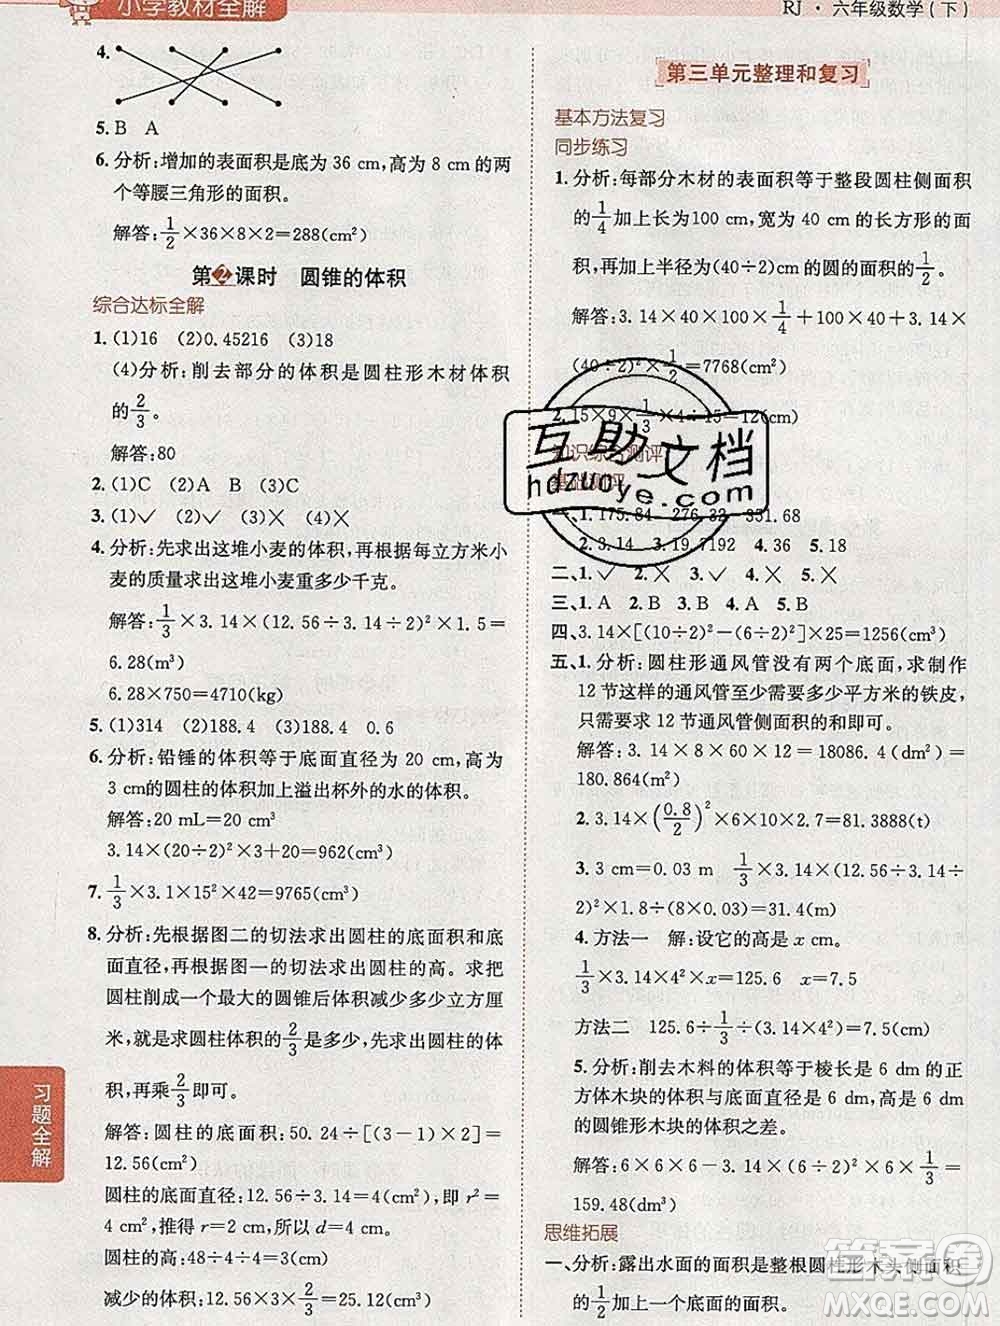 小学教材全解
RJ · 六年级数学(下)
4.
5. B A
6. 分析:增加的表面积是底为 36 cm,高为 8 cm 的两
个等腰三角形的面积。
解答:1/2×36×8×2=288(cm²)
第2课时 圆锥的体积
综合达标全解
1. (1)16 (2)0.45216 (3)18
(4)分析:削去部分的体积是圆柱形木材体积
的2/3。
解答:80
2. (1)C (2)A B (3)C
3. (1)✓ (2)✓ (3)✗ (4)✗
4. 分析:先求出这堆小麦的体积,再根据每立方米小
麦的质量求出这堆小麦重多少千克。
解答:1/3×3.14×(12.56÷3.14÷2)²×1.5=
6.28(m³)
6.28×750=4710(kg)
5. (1)314 (2)188.4 (3)188.4 0.6
6. 分析:铅锤的体积等于底面直径为 20 cm,高为
3 cm的圆柱的体积加上溢出杯外的水的体积。
解答:20 mL=20 cm³
3.14×(20÷2)²×3+20=962(cm³)
7. 1/3×3.1×15²×42=9765(cm³)
8. 分析:先根据图二的切法求出圆柱的底面积和底
面直径,再根据图一的切法求出圆柱的高。求把
圆柱削成一个最大的圆锥后体积减少多少立方厘
米,就是求圆柱体积的2/3是多少,先求出圆柱的体
积,再乘2/3即可。
解答:圆柱的底面积:50.24÷[(3-1)×2]=
12.56(cm²)
圆柱的底面直径:12.56÷3.14=4(cm²),即 r²=
4(cm²),推得 r=2 cm,所以 d=4 cm。
圆柱的高:48÷4÷4=3(cm)
减少的体积:12.56×3×2/3=25.12(cm³)
习题全解
第三单元整理和复习
基本方法复习
同步练习
1. 分析:每部分木材的表面积等于整段圆柱侧面积
的1/4加上长为100 cm,宽为 40 cm 的长方形的面
积,再加上半径为(40÷2)cm的圆的面积的1/2。
解答:3.14×40×100×1/4+100×40+3.14×
(40÷2)²×1/2=7768(cm²)
2. 15×9×1/3×4÷15=12(cm)
知识综合测评
基础测评
一、1. 175.84 276.32 351.68
2. 3.14 3. 19.7192 4. 36 5. 18
二、1. ✓ 2. ✗ 3. ✓ 4. ✗ 5. ✗
三、1. A 2. B 3. B 4. A 5. B
四、3.14×[(10÷2)²-(6÷2)²]×25=1256(cm³)
五、1. 分析:圆柱形通风管没有两个底面,求制作
12 节这样的通风管至少需要多少平方米的铁皮,
只需要求 12 节通风管侧面积的和即可。
解答:3.14×4×120×12=18086.4(dm²)=
180.864(m²)
2. 3.14×(0.8/2)²×6×10×2.7=81.3888(t)
3. 3 cm=0.03 m 1/3×3.14×(12.56÷3.14÷
2)²×1.8÷8÷0.03=31.4(m)
4. 方法一 解:设它的高是 x cm。
1/3×3.14×4²×x=125.6 x=7.5
方法二 125.6÷1/3÷(3.14×4²)=7.5(cm)
5. 分析:削去木料的体积等于棱长是 6 dm 的正
方体木块的体积与底面直径是 6 dm,高是 6 dm
的圆锥形木块的体积之差。
解答:6×6×6-3.14×(6÷2)²×6×1/3=
159.48(dm³)
思维拓展
一、分析:露出水面的面积是整根圆柱形木头侧面积
的1/2加上一个底面的面积。
互助文档
hdzuoye.com
答案圈
MXQE.COM